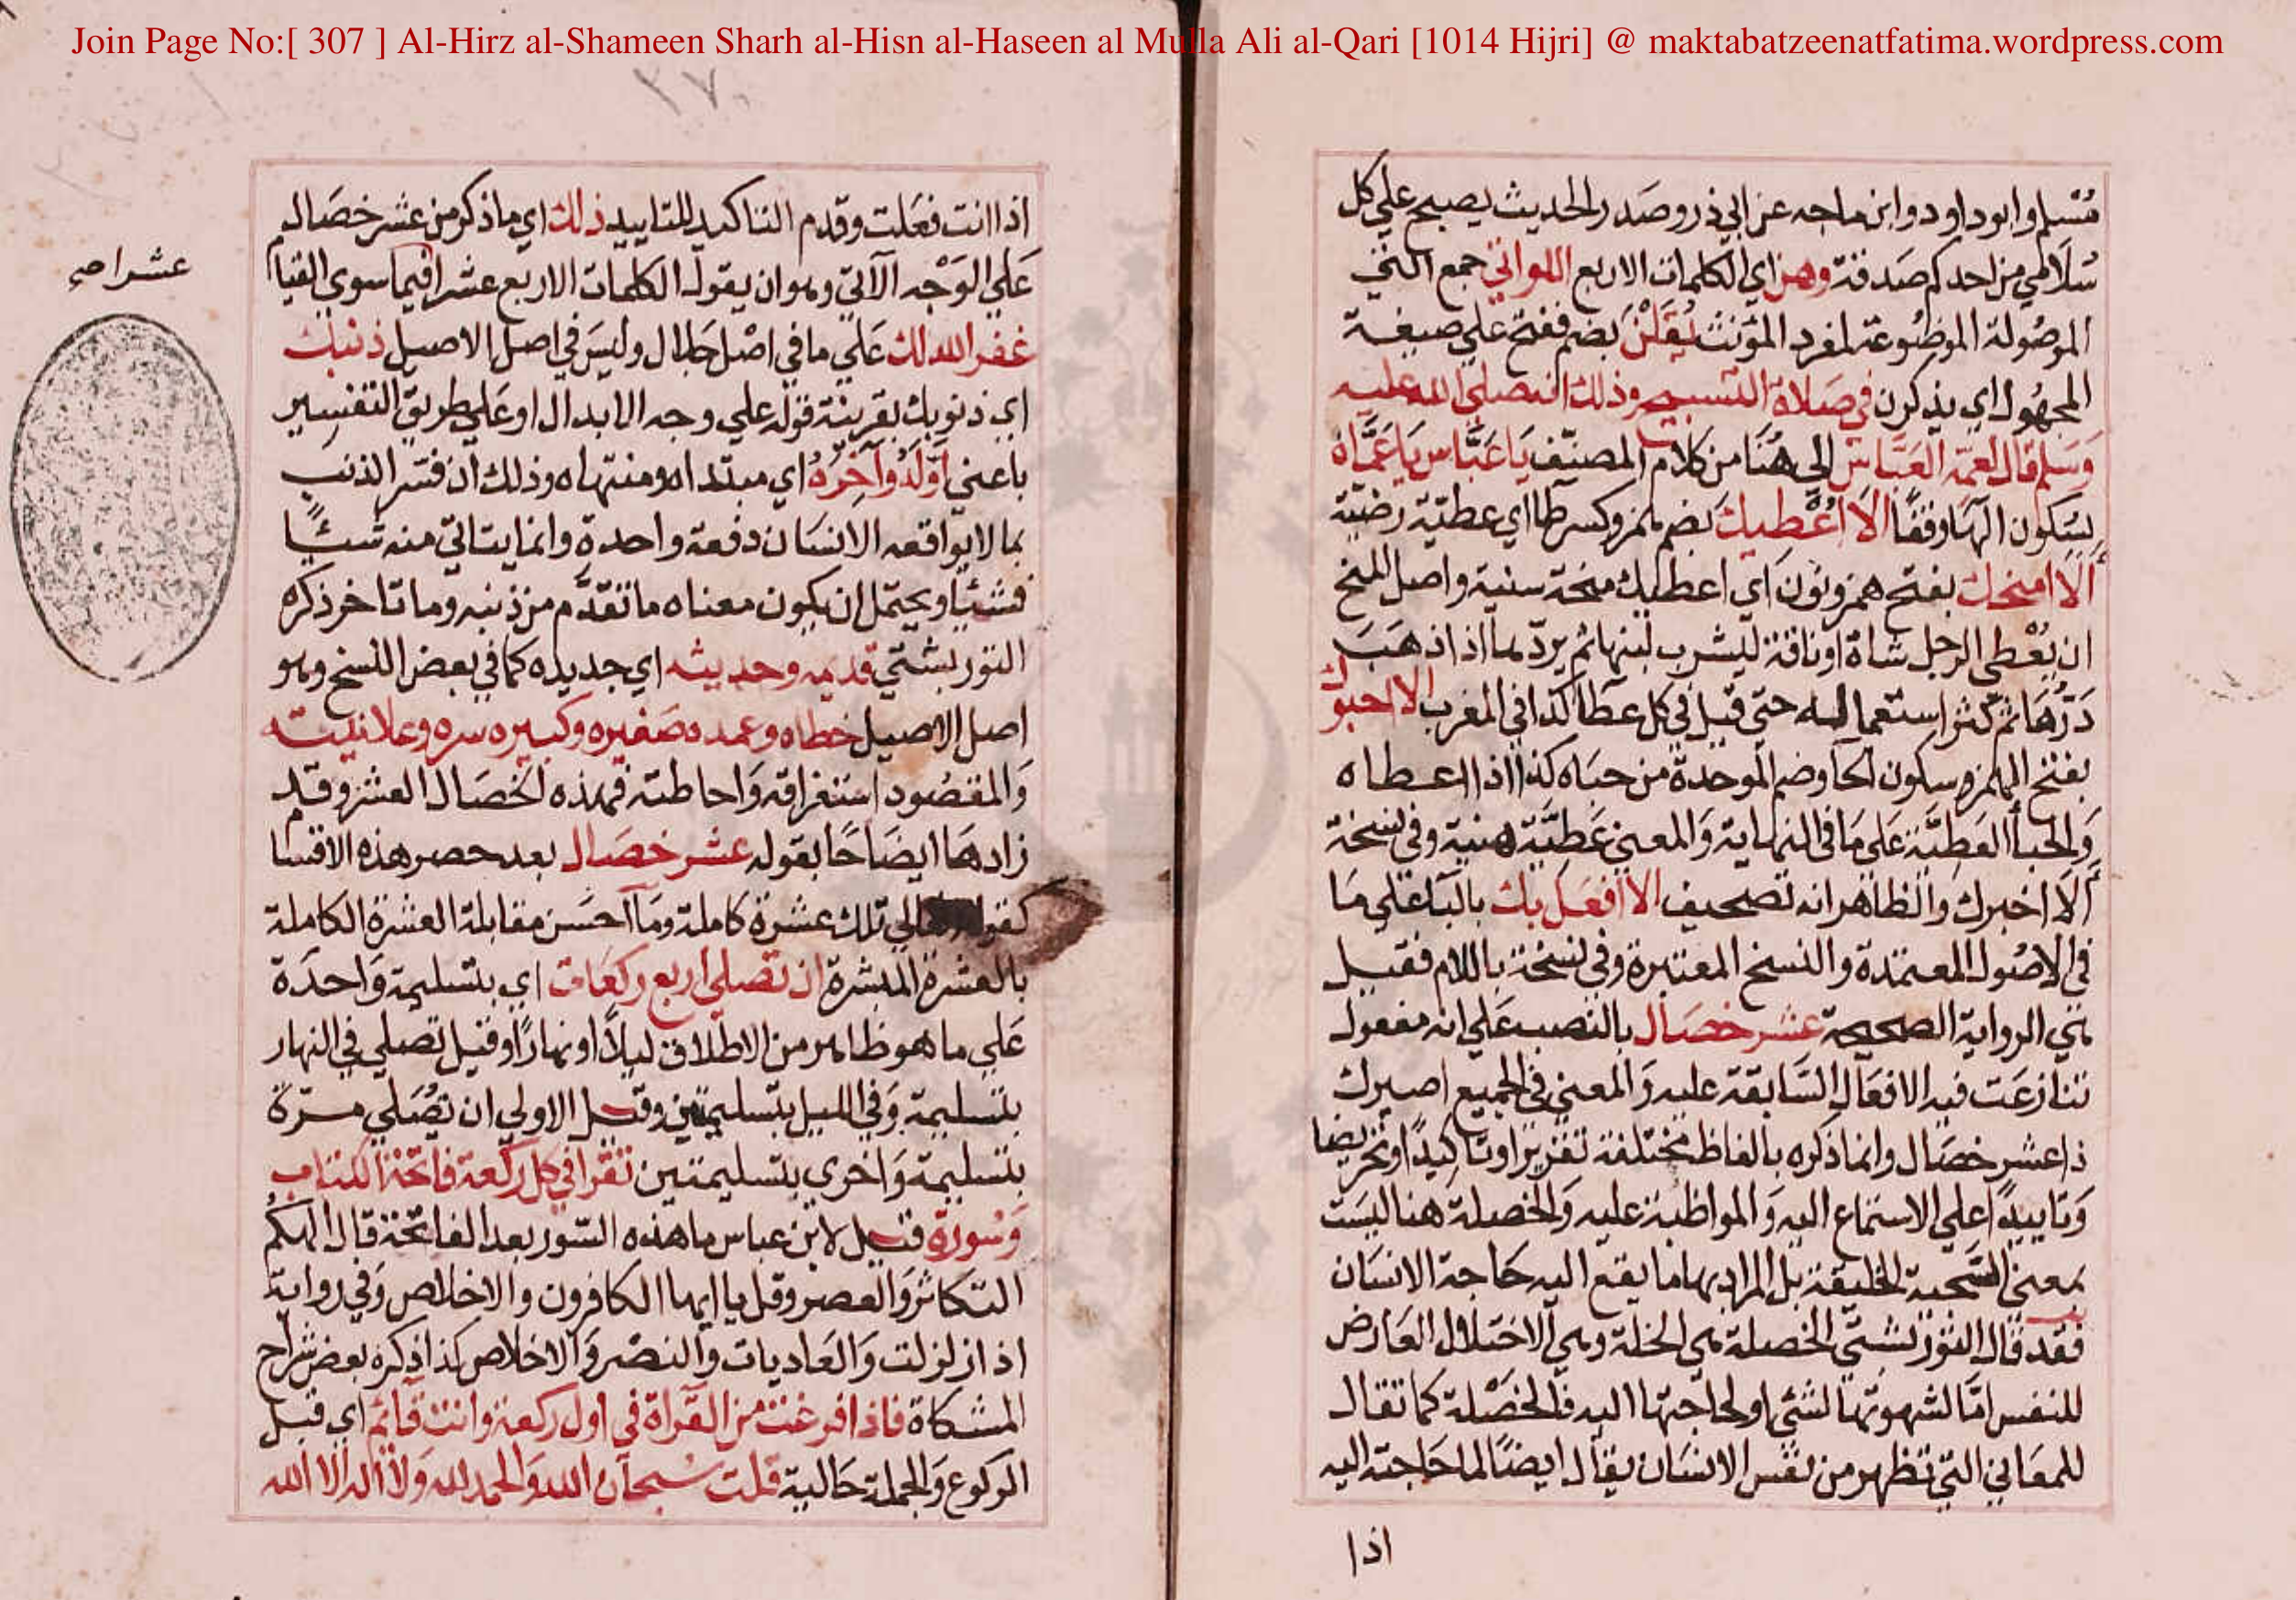 Join Page No:[ 307 ] Al-Hirz al-Shameen Sharh al-Hisn al-Haseen al Mulla Ali al-Qari [1014 Hijri] @ maktabatzeenatfatima.wordpress.com
مسلم وابو داود وابن ماجه عن ابي ذر وصدر الحديث يصبح علي كل
سلامي من احدكم صدقة وهن اي الكلمات الاربع اللواتي جمع التي
الموصولة الموضوعة لمفرد المؤنث يقلن بضم ففتح علي صيغة
المجهول اي يذكرن في صلاة التسبيح وذلك انه صلى الله عليه
وسلم قال لعمه العباس الي هنا من كلام المصنف يا عباس يا عماه
بسكون الهاء وقفا الا اعطيك بضم همز وكسر طا اي عطية رضية
الا امنحك بفتح همز ونون اي اعطيك منحة سنية واصل المنح
ان يعطي الرجل شاة او ناقة ليشرب لبنها ثم يردها اذا ذهب
درها ثم كثر استعماله حتي قيل في كل عطا كذا في المغرب الا احبوك
بفتح الهمزه وسكون الحا وضم الموحدة من حباه كذا اذا اعطاه
والحبا العطية علي ما في النهاية والمعني عطية هنية وفي نسخة
الا اخبرك والظاهر انه تصحيف الا افعل بك بالبا علي ما
في الاصول المعتمدة والنسخ المعتبرة وفي نسخة باللام فقيل
هي الرواية الصحيحة عشر خصال بالنصب علي انه مفعول
تنازعت فيه الافعال السابقة عليه والمعني في الجميع اصيرك
ذا عشر خصال وانما ذكره بالفاظ مختلفة تقريرا وتاكيدا وتحريضا
وتاييدا علي الاستماع اليه والمواظبة عليه والخصلة هنا ليست
بمعني السجية الخليقة بل المراد بها ما يقع اليه حاجة الانسان
فقد قال التوربشتي الخصلة هي الخلة وهي الاختلال العارض
للنفس اما لشهوتها لشئ او لحاجتها اليه فالخصلة كما تقال
للمعاني التي تظهر من نفس الانسان يقال ايضا لما حاجته اليه
اذا
٢٧٠
اذا انت فعلت وقدم التاكيد للتاييد ذلك اي ما ذكر من عشر خصال
علي الوجه الآتي وهو ان يقول الكلمات الاربع عشرا فيما سوي القيام
عشرا صح
غفر الله لك علي ما في اصل جلال وليس في اصل الاصيل ذنبك
اي ذنوبك بقرينة قوله علي وجه الابدال او علي طريق التفسير
باعني اوله وآخره اي مبتداه ومنتهاه وذلك ان فسر الذنب
بما لا يواقعه الانسان دفعة واحدة وانما يتاتي منه شيئا
فشيئا ويحتمل ان يكون معناه ما تقدم من ذنبه وما تاخر ذكره
التوربشتي قديمه وحديثه اي جديده كما في بعض النسخ وهو
اصل الاصيل خطاه وعمده صغيره وكبيره سره وعلانيته
والمقصود استغراقه واحاطته فهذه الخصال العشر وقد
زادها ايضاحا بقوله عشر خصال بعد حصر هذه الاقسا
كقوله تعالي تلك عشرة كاملة وما احسن مقابلة العشرة الكاملة
بالعشرة المبشرة ان تصلي اربع ركعات اي بتسليمة واحدة
علي ما هو ظاهر من الاطلاق ليلا او نهارا وقيل تصلي في النهار
بتسليمة وفي الليل بتسليمتين وقيل الاولي ان تصلي مرة
بتسليمة واخري بتسليمتين تقرا في كل ركعة فاتحة الكتاب
وسورة قيل لابن عباس ما هذه السور بعد الفاتحة قال الهكم
التكاثر والعصر وقل يا ايها الكافرون والاخلاص وفي رواية
اذا زلزلت والعاديات والنصر والاخلاص كذا ذكره بعض شراح
المشكاة فاذا فرغت من القراة في اول ركعة وانت قائم اي قبل
الركوع والجملة حالية قلت سبحان الله والحمد لله ولا اله الا الله